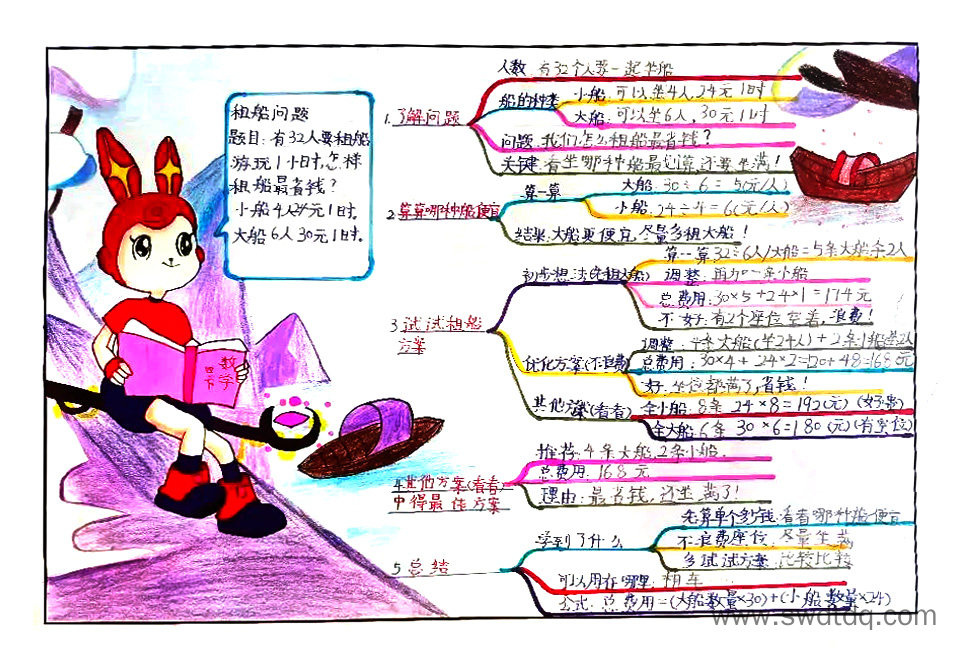 租船问题
题目:有32人要租船
游玩1小时,怎样
租船最省钱?
小船4人24元1时.
大船6人30元1时.
数学
四下
1.了解问题
人数:有32个人要一起坐船
船的种类
小船:可以坐4人,24元1时
大船:可以坐6人,30元1时
问题:我们怎么租船最省钱?
关键:看坐哪种船最划算,还要坐满!
2.算算哪种船便宜
算一算
大船:30÷6=5(元/人)
小船:24÷4=6(元/人)
结果:大船更便宜,尽量多租大船!
3试试租船
方案
初步想法(先租大船)
算一算32÷6人/大船=5条大船余2人
调整:再加一条小船
总费用:30×5+24×1=174元
不好:有2个座位空着,浪费!
优化方案(不浪费)
调整:4条大船(坐24人)+2条小船坐8人
总费用:30×4+24×2=120+48=168元
好:坐位都满了,省钱!
其他方案(看看)
全小船:8条 24×8=192(元)
全大船:6条 30×6=180(元)(有空位)
4其他方案(看看)
中得最佳方案
推荐:4条大船,2条小船.
总费用:168元
理由:最省钱,还坐满了!
5总结
学到了什么
先算单个多少钱:看看哪种船便宜
不浪费座位:尽量坐满
多试试方案:比较比较
可以用在哪里:租车
公式:总费用=(大船数量×30)+(小船数量×24)
www.swdtdq.com